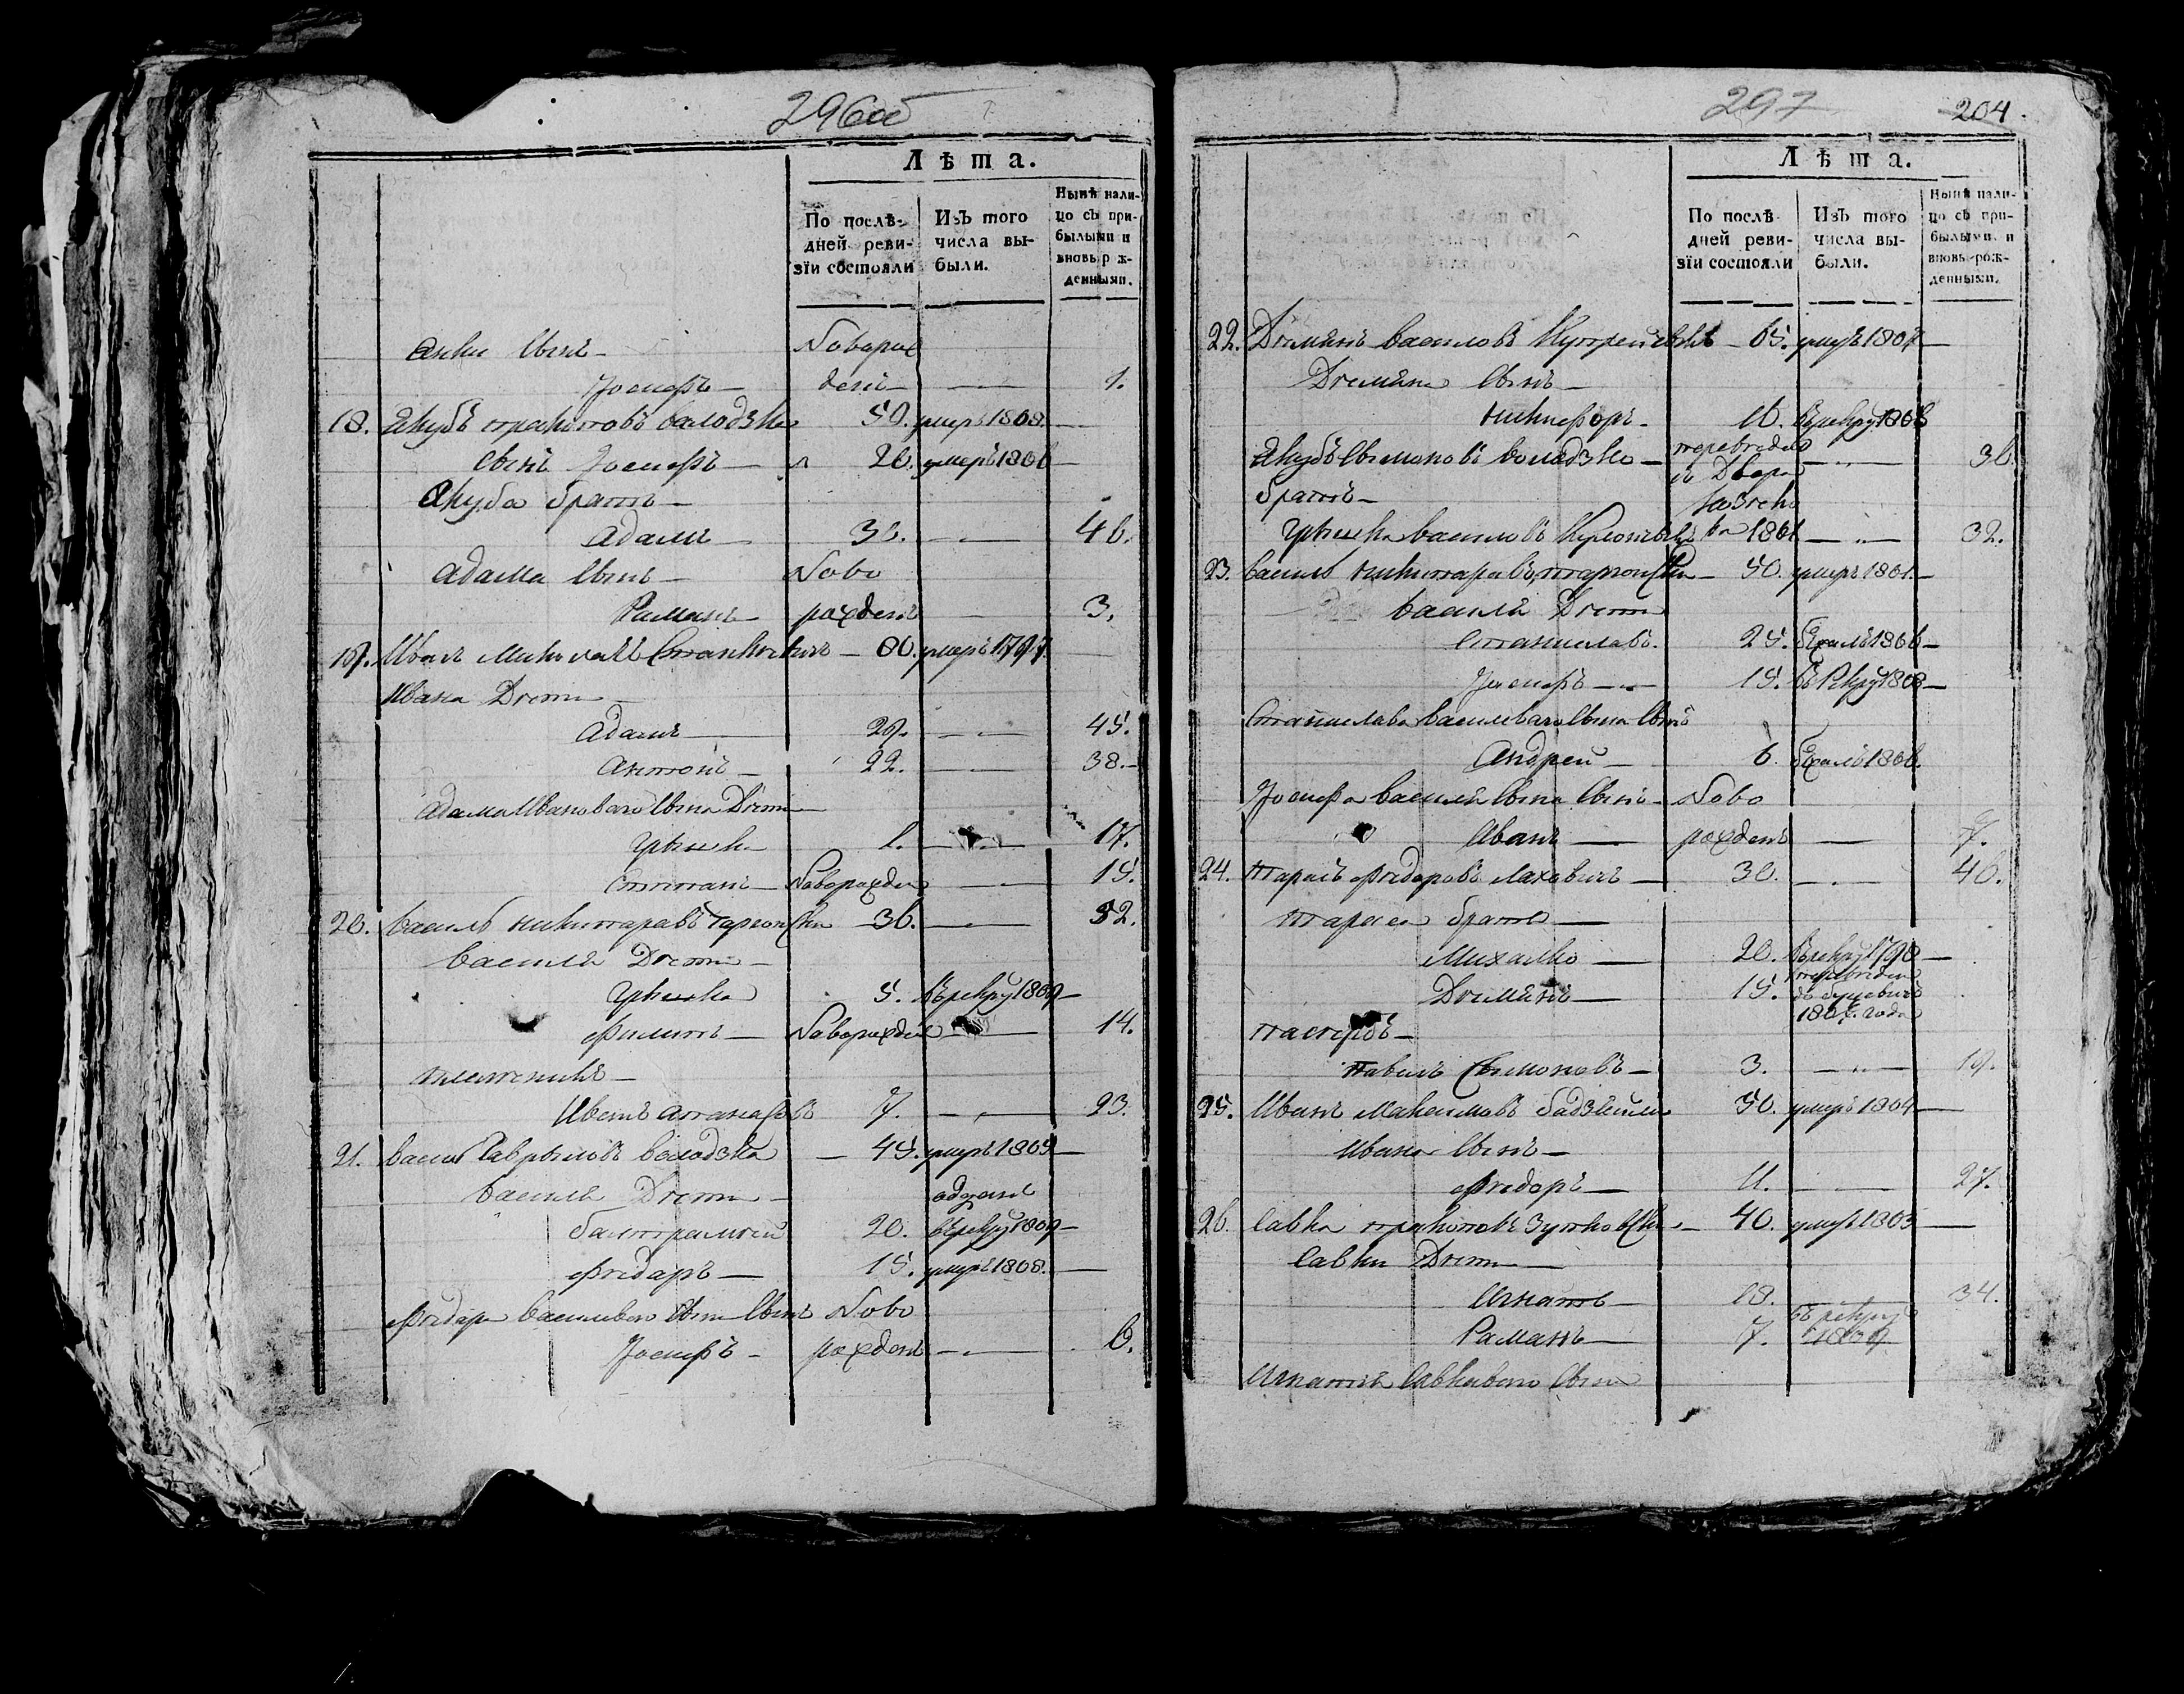 296об
Лѣта.
По послѣдней ревизіи состояли
Изъ того числа выбыли.
Нынѣ налицо съ прибылыми и вновь р ж-денными.
Анки Сынъ — Новорож
Іосифъ — денъ — 1.
18. Якубъ володзко 50. умеръ 1808. —
Сынъ Іосифъ — 20. умеръ 1806 —
Якуба братъ —
Адамъ — 30. — 46.
Адама Сынъ — Ново
Раманъ — рожденъ — 3.
19. Иванъ Миколаевъ Станкевичъ — 80. умеръ 1797.
Ивана Дети —
Адамъ — 29. — 45.
Антонъ — 22. — 38. —
Адама Ивановаго Сына Дети —
Грышка 1. — 17.
Степанъ — Новорожден — 15.
20. Василь Никипаравъ — 36. — 52.
Василя Дети —
Грышка 5. въ рекру 1809 —
Филипъ — Новорожден — 14.
племеникъ —
Иванъ Атанасовъ 7. — 23.
21. Васил Гаврыловъ володзка — 45. умеръ 1809 —
Василя Дети — одданъ
балтрамей 20. въ рекру 1809 —
Фёдаръ — 15. умеръ 1808. —
Фёдара Василевого Сына Сынъ Ново
Іосифъ — рожденъ — 6.
297
204.
Лѣта.
По послѣдней ревизіи состояли
Изъ того числа выбыли.
Нынѣ налицо съ прибылыми и вновь рожденными.
22. Демянъ Василовъ — 65. умеръ 1807 —
Демяна Сынъ —
Никифоръ — 16. въ рекру 1808
Якубъ Сымоновъ володзко — переведенъ — 36.
братъ — изъ Двора
Грышка Василовъ 1801 — 32.
23. Василь Никипаравъ — 50. умеръ 1801. —
Василя Дети
Станиславъ. 25. бежалъ 1806 —
Іосифъ — 15. въ Рекру 1808 —
Станислава Василеваго Сына Сынъ
Андрей — 6. бежалъ 1806.
Іосифа Василя Сына Сынъ — Ново
Иванъ — рожденъ — 7.
24. Тарасъ Фёдаровъ Лаховичъ — 30. — 46.
Тараса братья —
Михалко — 20. въ рекру 1798 —
Демянъ — 15. переведенъ
1807. года
пасербъ —
Павелъ Сымоновъ — 3. — 19.
25. Иванъ Максимовъ 50. умеръ 1804 —
Ивана Сынъ —
Фёдоръ — 11. — 27.
26. Савка — 40. умеръ 1805 —
Савки Дети —
Игнатъ — 18. — 34.
Раманъ — 7. въ рекру 1809
Игната Савкиваго Сына